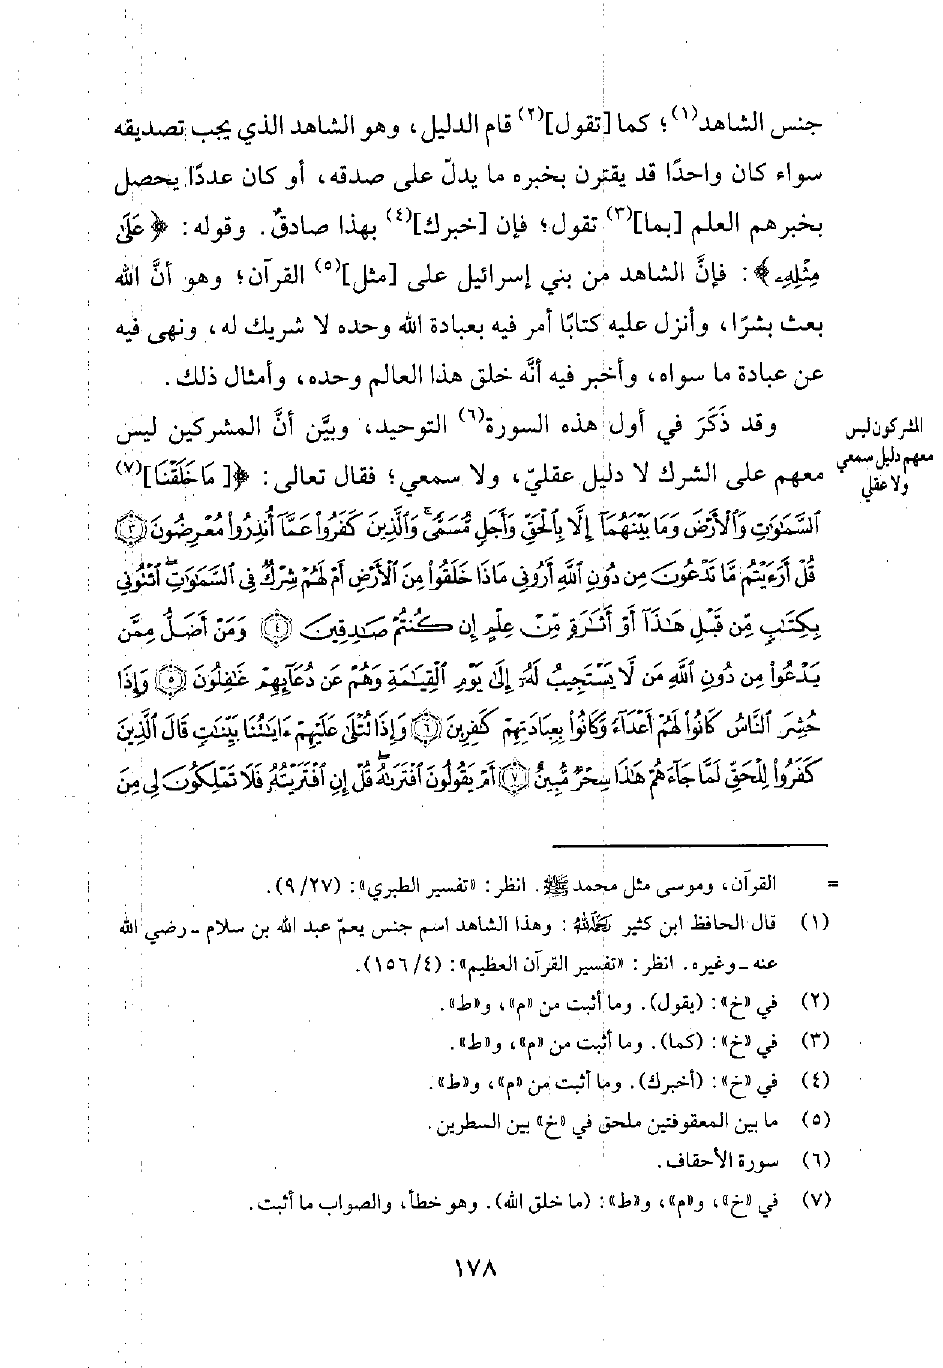 جنس الشاهد(١)؛ كما [تقول](٢) قام الدليل، وهو الشاهد الذي يجب تصديقه
سواء كان واحدًا قد يقترن بخبره ما يدلّ على صدقه، أو كان عددًا يحصل
بخبرهم العلم [بما](٣) تقول؛ فإن [خبرك](٤) بهذا صادقٌ. وقوله: ﴿عَلَىٰ
مِثْلِهِۦ﴾: فإنَّ الشاهد من بني إسرائيل على [مثل](٥) القرآن؛ وهو أنَّ الله
بعث بشرًا، وأنزل عليه كتابًا أمر فيه بعبادة الله وحده لا شريك له، ونهى فيه
عن عبادة ما سواه، وأخبر فيه أنَّه خلق هذا العالم وحده، وأمثال ذلك.
وقد ذَكَرَ في أول هذه السورة(٦) التوحيد، وبيَّن أنَّ المشركين ليس
معهم على الشرك لا دليل عقليّ، ولا سمعي؛ فقال تعالى: ﴿[مَا خَلَقْنَا](٧)
ٱلسَّمَٰوَٰتِ وَٱلْأَرْضَ وَمَا بَيْنَهُمَآ إِلَّا بِٱلْحَقِّ وَأَجَلٍ مُّسَمًّى ۚ وَٱلَّذِينَ كَفَرُوا۟ عَمَّآ أُنذِرُوا۟ مُعْرِضُونَ ٣
قُلْ أَرَءَيْتُم مَّا تَدْعُونَ مِن دُونِ ٱللَّهِ أَرُونِى مَاذَا خَلَقُوا۟ مِنَ ٱلْأَرْضِ أَمْ لَهُمْ شِرْكٌ فِى ٱلسَّمَٰوَٰتِ ۖ ٱئْتُونِى
بِكِتَٰبٍ مِّن قَبْلِ هَٰذَآ أَوْ أَثَٰرَةٍ مِّنْ عِلْمٍ إِن كُنتُمْ صَٰدِقِينَ ٤ وَمَنْ أَضَلُّ مِمَّن
يَدْعُوا۟ مِن دُونِ ٱللَّهِ مَن لَّا يَسْتَجِيبُ لَهُۥٓ إِلَىٰ يَوْمِ ٱلْقِيَٰمَةِ وَهُمْ عَن دُعَآئِهِمْ غَٰفِلُونَ ٥ وَإِذَا
حُشِرَ ٱلنَّاسُ كَانُوا۟ لَهُمْ أَعْدَآءً وَكَانُوا۟ بِعِبَادَتِهِمْ كَٰفِرِينَ ٦ وَإِذَا تُتْلَىٰ عَلَيْهِمْ ءَايَٰتُنَا بَيِّنَٰتٍ قَالَ ٱلَّذِينَ
كَفَرُوا۟ لِلْحَقِّ لَمَّا جَآءَهُمْ هَٰذَا سِحْرٌ مُّبِينٌ ٧ أَمْ يَقُولُونَ ٱفْتَرَىٰهُ ۖ قُلْ إِنِ ٱفْتَرَيْتُهُۥ فَلَا تَمْلِكُونَ لِى مِنَ
المشركون ليس
معهم دليل سمعي
ولا عقلي
= القرآن، وموسى مثل محمد ﷺ. انظر: «تفسير الطبري»: (٩/٢٧).
(١) قال الحافظ ابن كثير رحمه الله: وهذا الشاهد اسم جنس يعمّ عبد الله بن سلام ـ رضي الله
عنه ـ وغيره. انظر: «تفسير القرآن العظيم»: (١٥٦/٤).
(٢) في «خ»: (يقول). وما أثبت من «م»، و«ط».
(٣) في «خ»: (كما). وما أثبت من «م»، و«ط».
(٤) في «خ»: (أخبرك). وما أثبت من «م»، و«ط».
(٥) ما بين المعقوفتين ملحق في «خ» بين السطرين.
(٦) سورة الأحقاف.
(٧) في «خ»، و«م»، و«ط»: (ما خلق الله). وهو خطأ، والصواب ما أثبت.
١٧٨